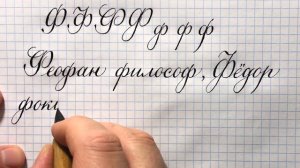 Ф Ф Ф Ф ф ф ф
Феофан философ, Фёдор
фоки